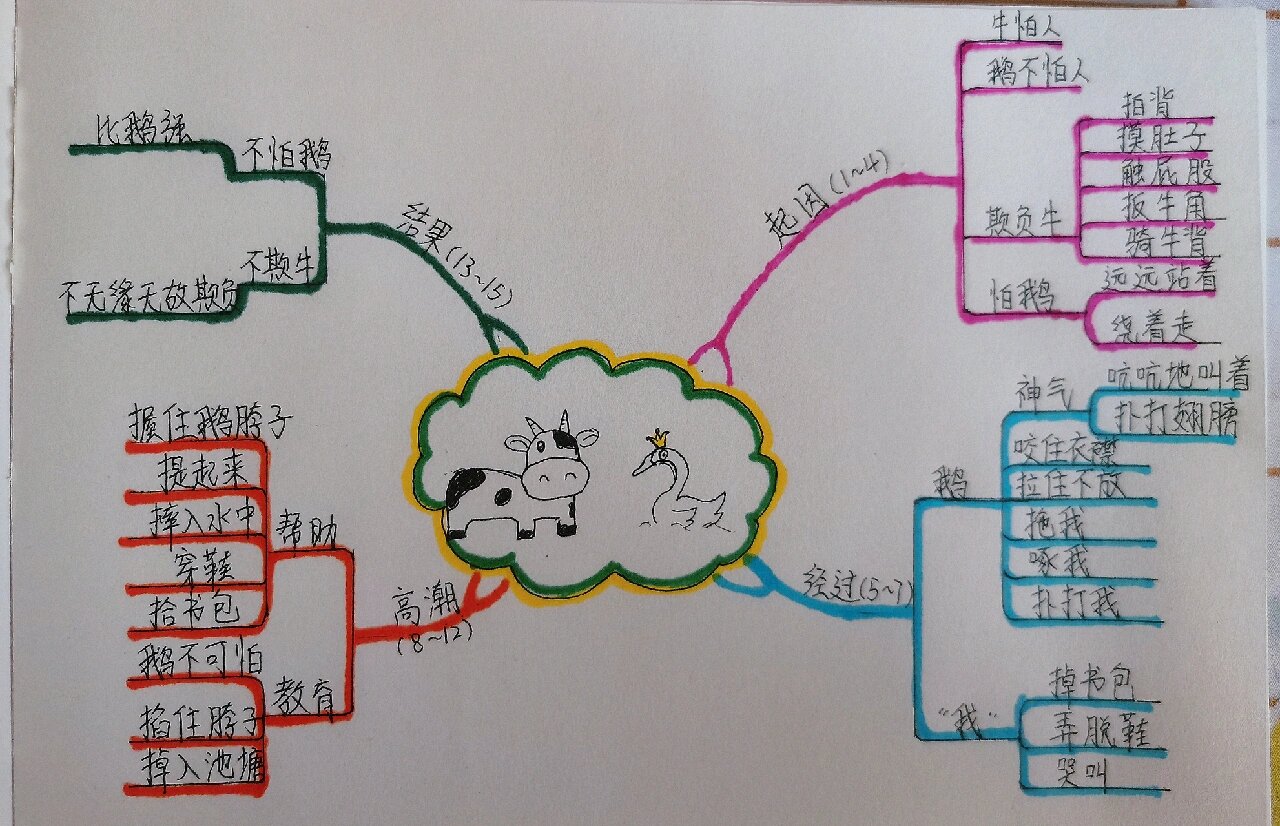 起因(1~4)
牛怕人
鹅不怕人
欺负牛
拍背
摸肚子
触屁股
扳牛角
骑牛背
怕鹅
远远站着
绕着走
经过(5~7)
鹅
神气
吭吭地叫着
扑打翅膀
咬住衣襟
拉住不放
拖我
啄我
扑打我
“我”
掉书包
弄脱鞋
哭叫
高潮
(8~12)
帮助
握住鹅脖子
提起来
摔入水中
穿鞋
拾书包
教育
鹅不可怕
掐住脖子
掉入池塘
结果(13~15)
不怕鹅
比鹅强
不欺牛
不无缘无故欺负